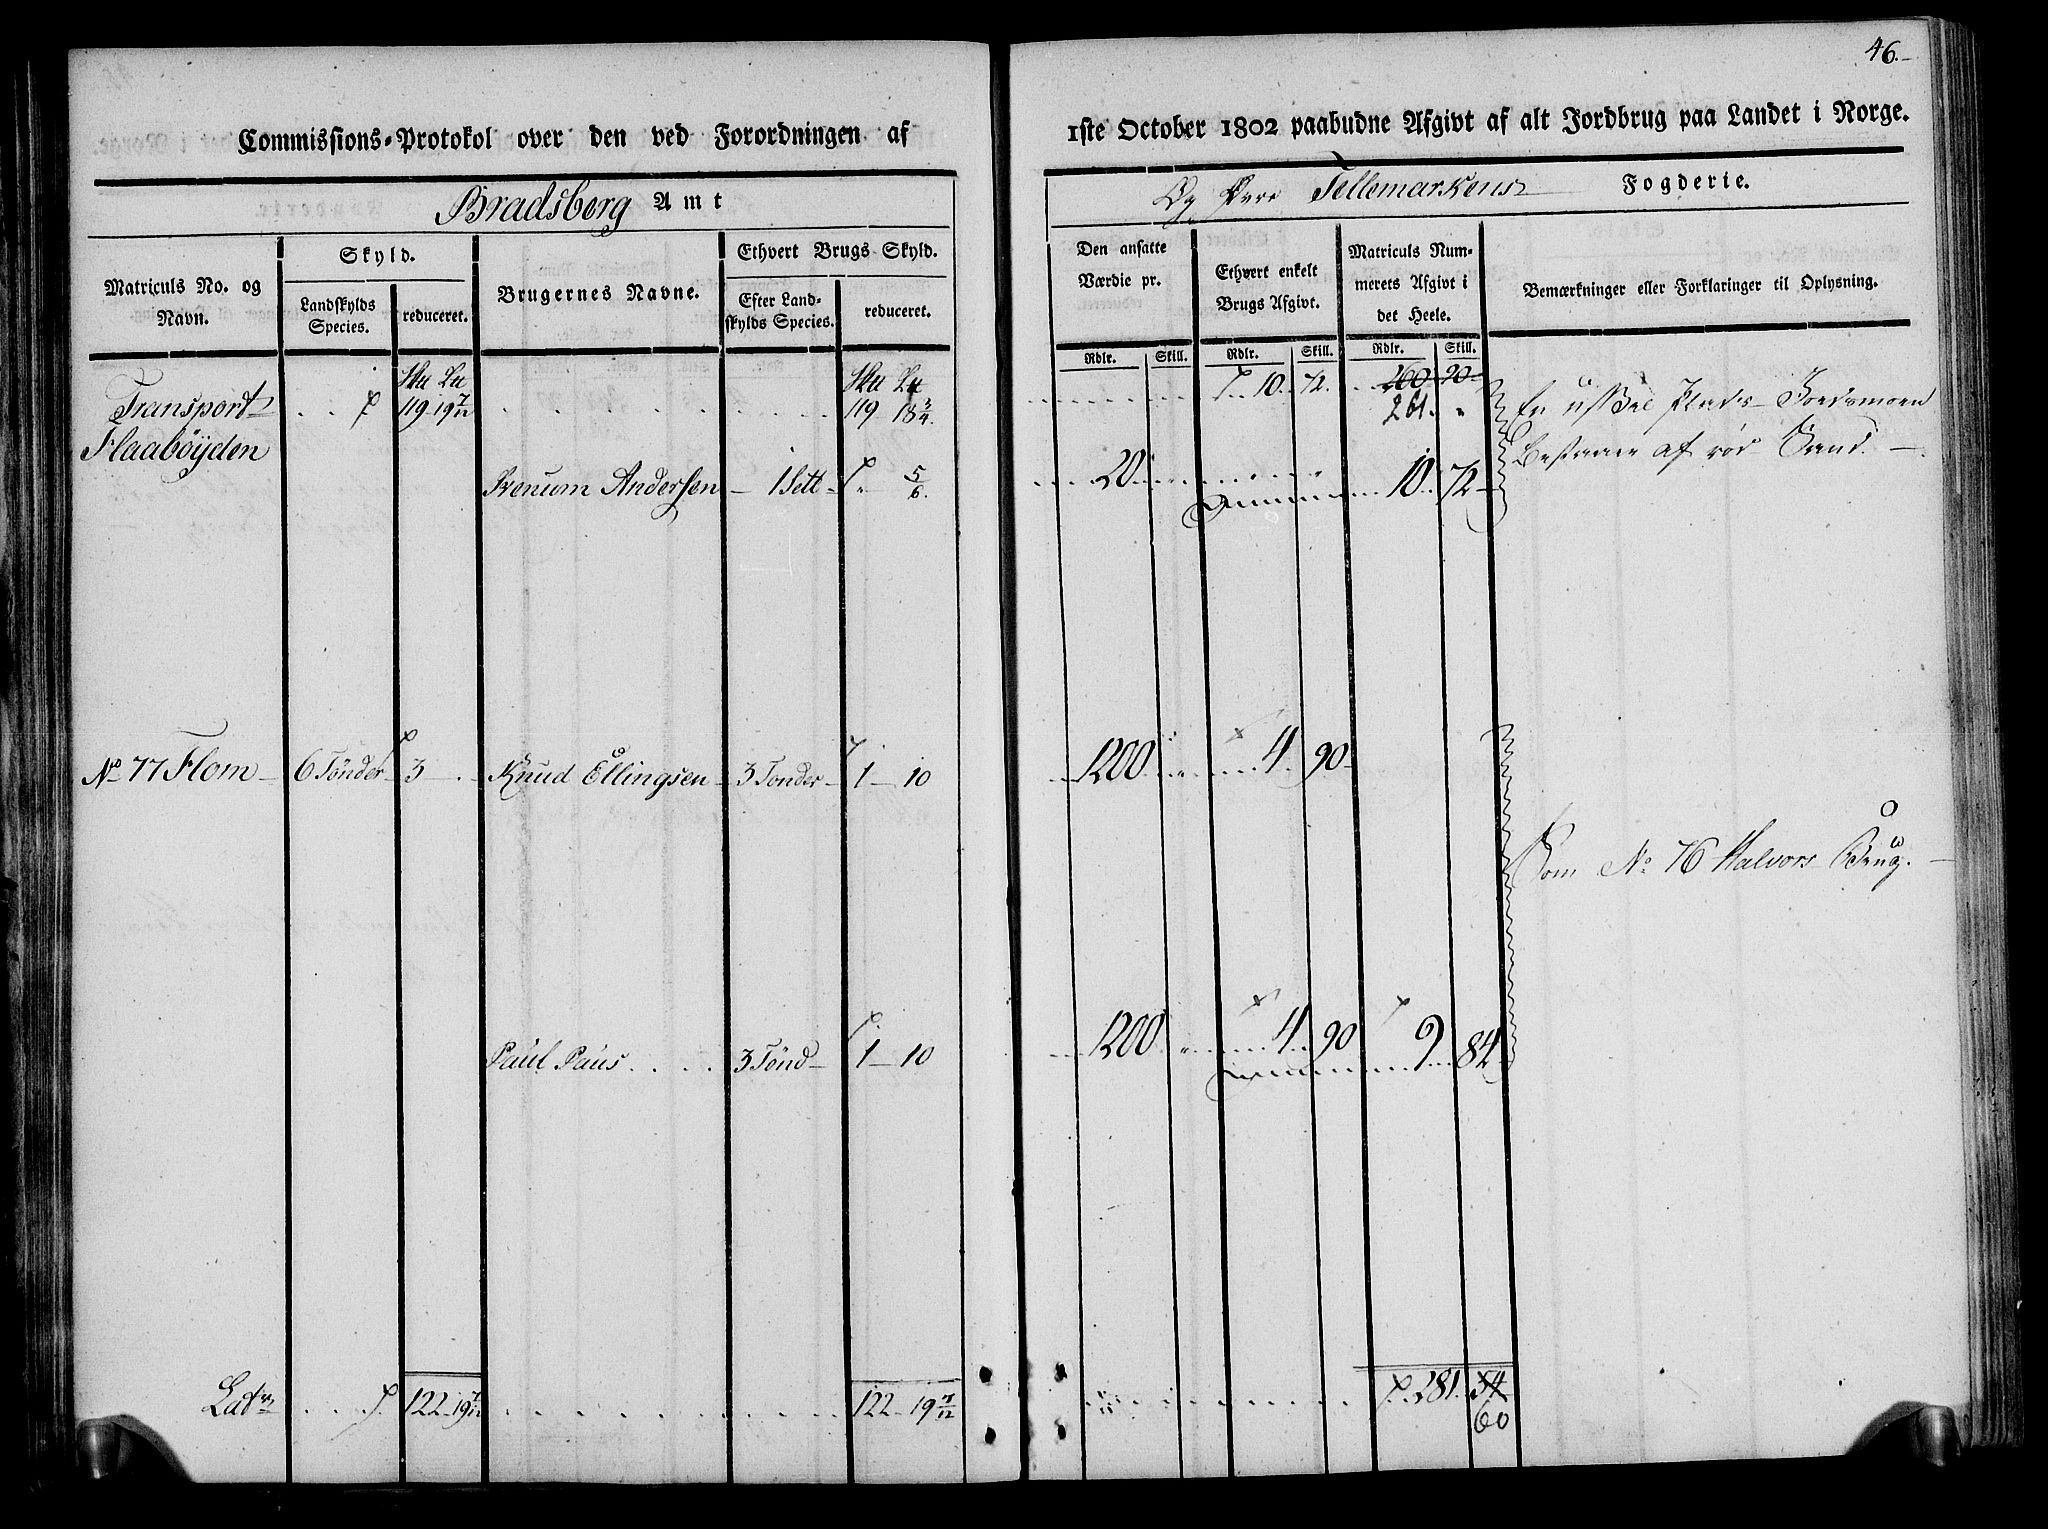 46.
Commissions-Protokol over den ved Forordningen af
1ste October 1802 paabudne Afgivt af alt Jordbrug paa Landet i Norge.
Bradsberg Amt
Og Øvre Tellemarkens Fogderie.
Matriculs No. og Navn.
Skyld.
Landskylds Species.
reduceret.
Brugernes Navne.
Ethvert Brugs Skyld.
Efter Landskylds Species.
reduceret.
Den ansatte Værdie pr.
Rdlr. Skill.
Ethvert enkelt Brugs Afgivt.
Rdlr. Skill.
Matriculs Nummerets Afgivt i det Heele.
Rdlr. Skill.
Bemærkninger eller Forklaringer til Oplysning.
Transport 119 19 7/12 119 18 3/4 10 72 260 90
261 "
Flaabøyden
Svenum Andersen 1 Sett " 5/6 20 10 72
af rød Sand
No 77 Flom 6 Tønder 3 Knud Ellingsen 3 Tønder 1 10 1200 4 90
Som No 76 Halvors Brug.
Paul Paus 3 Tønd 1 10 1200 4 90 9 84
Lat 122 19 7/12 122 19 7/12 281 54
60